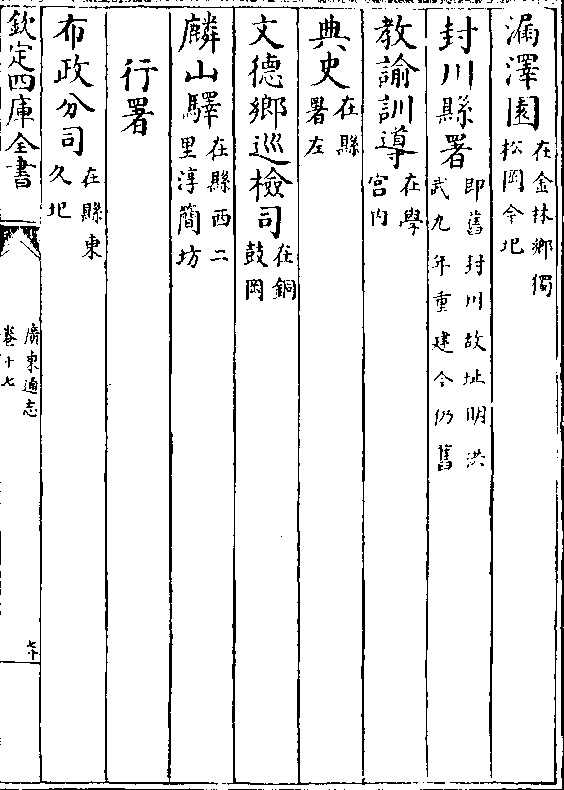 漏澤園在金林鄉獨
松岡今圯
封川縣署即舊封川故址明洪
武九年重建今仍舊
教諭訓導在學
宮内
典史在縣
署左
文德鄉巡檢司在銅
鼓岡
麟山驛在縣西二
里淳簡坊
行署
布政分司在縣東
久圯
欽定四庫全書
廣東通志
卷十七
七十